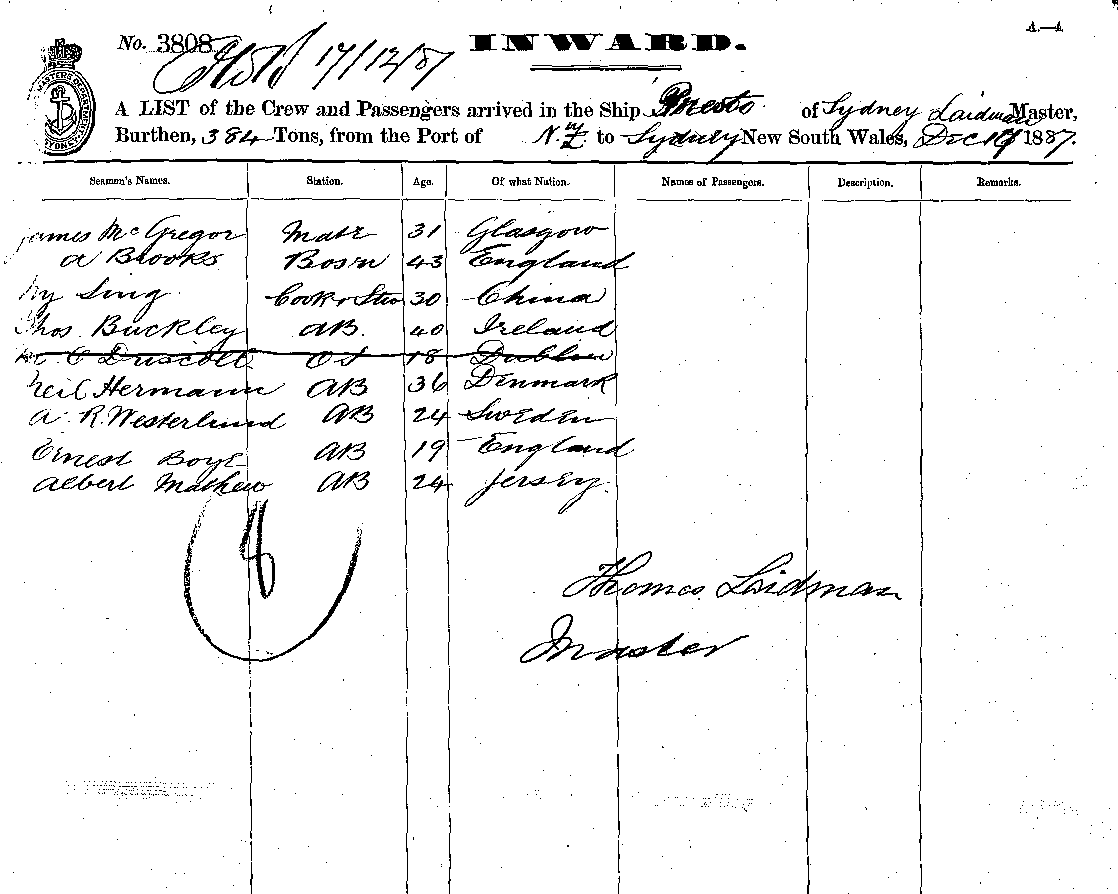 A—A
No. 3808 INWARD.
17/12/87
MASTERS DEPARTMENT SYDNEY
A LIST of the Crew and Passengers arrived in the Ship Presto of Sydney Laidman Master,
Burthen, 384 Tons, from the Port of N.Z to Sydney New South Wales, Dec 1887.
Seamen's Names. Station. Age. Of what Nation. Names of Passengers. Description. Remarks.
James McGregor Mate 31 Glasgow
A Brooks Bosn 43 England
Sing Cook & Stw 30 China
Thos. Buckley AB. 40 Ireland
Driscoll OS 18 Dublin
Neil Hermann AB 36 Denmark
A. R. Westerlund AB 24 Sweden
Ernest Boye AB 19 England
Albert Mathew AB 24 Jersey.
8
Thomas Laidman
Master